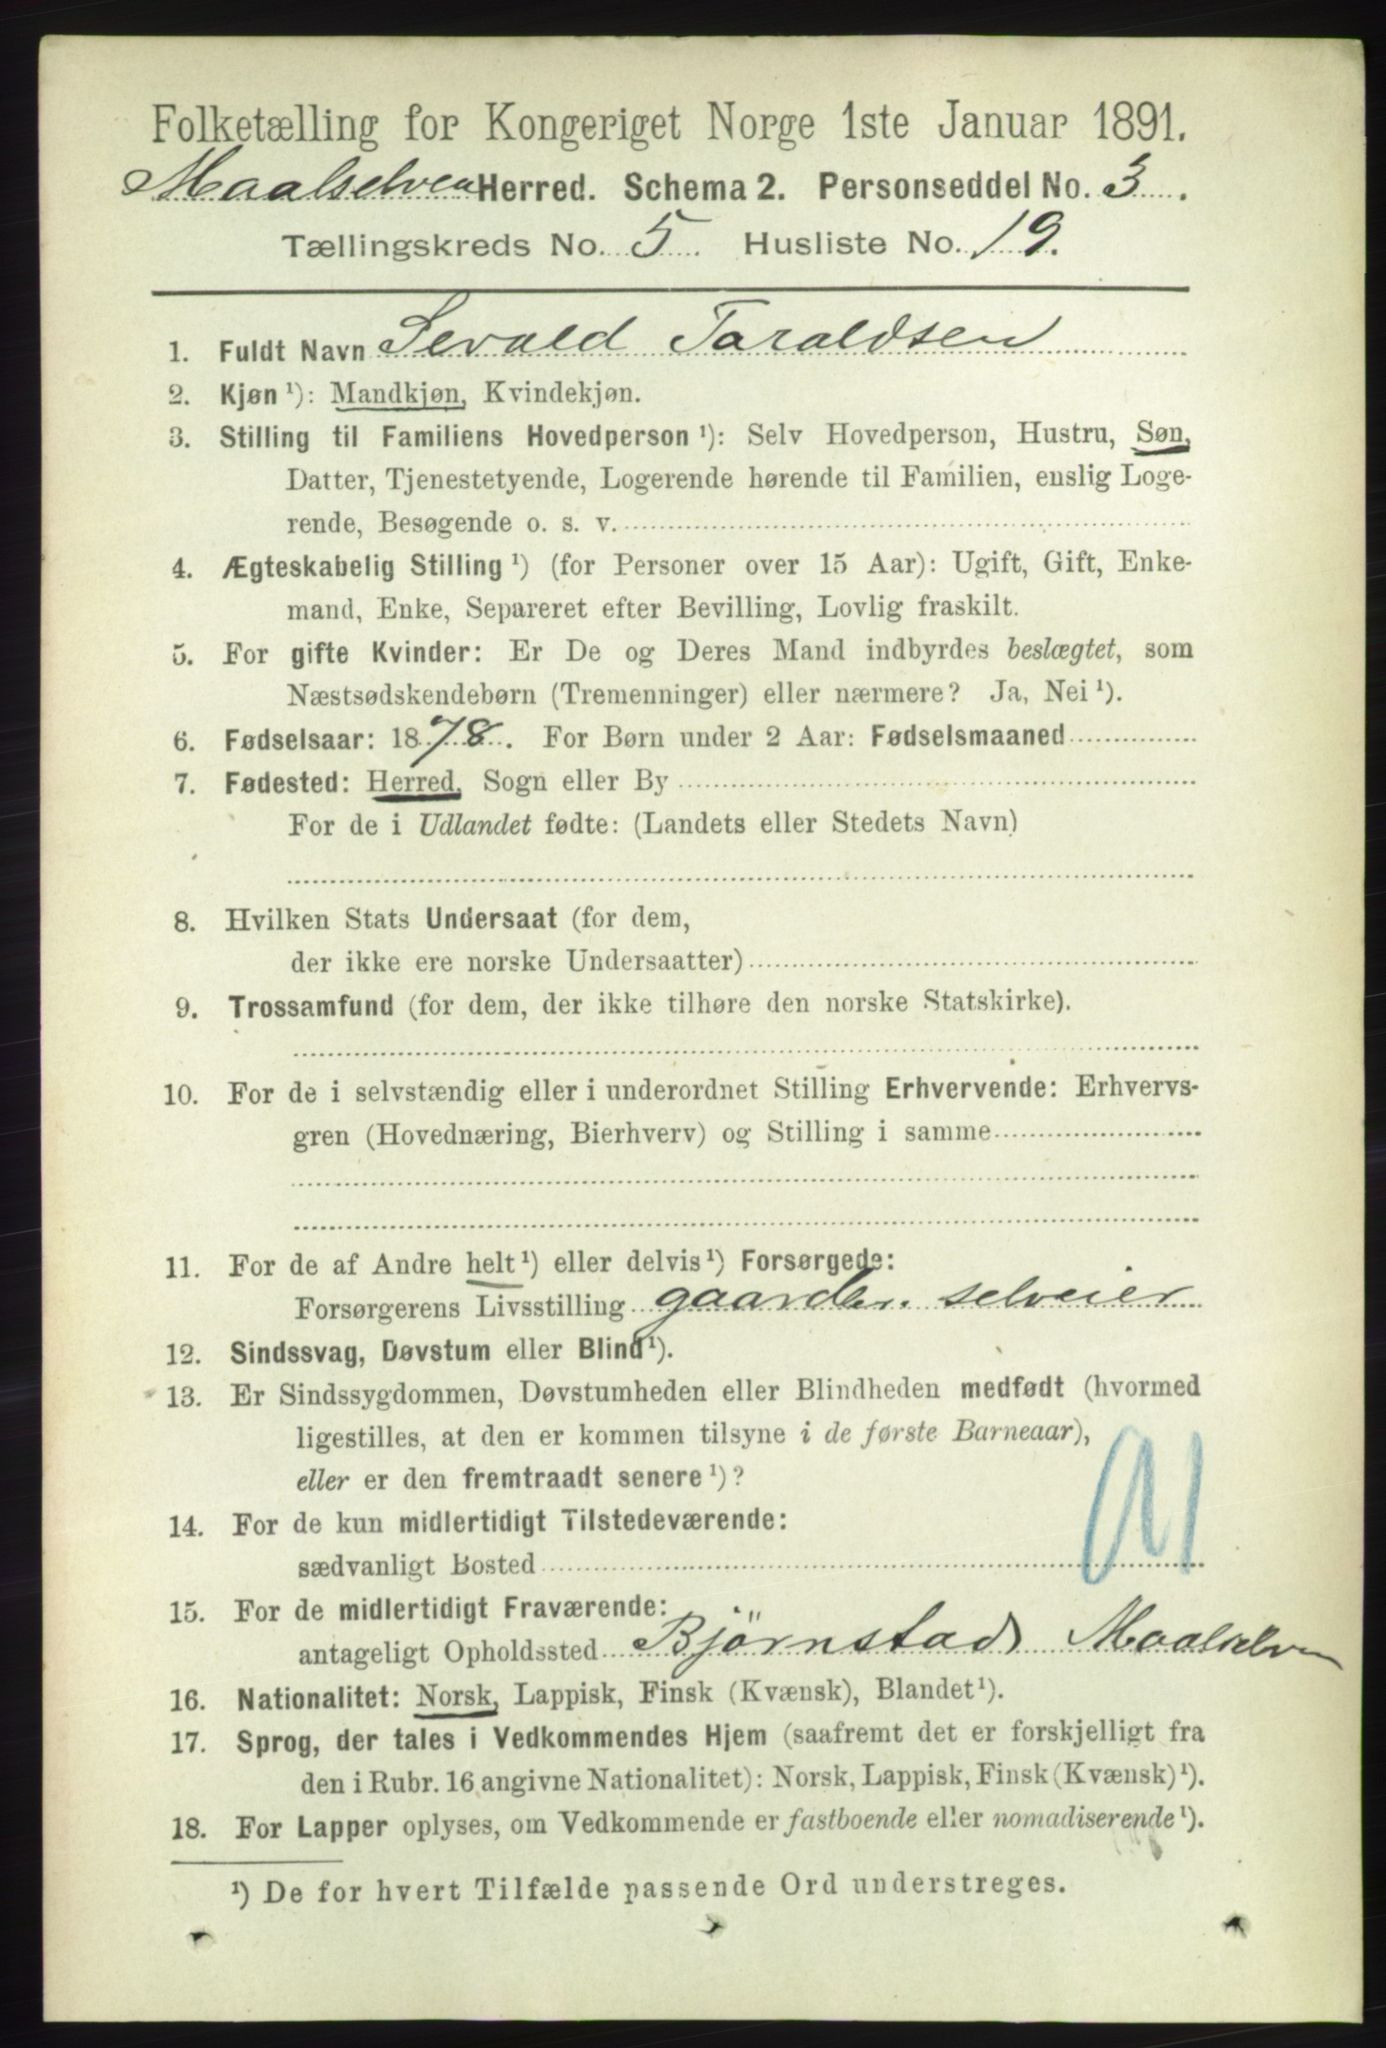 Folketælling for Kongeriget Norge 1ste Januar 1891.
Maalselven Herred. Schema 2. Personseddel No. 3.
Tællingskreds No. 5. Husliste No. 19.
1. Fuldt Navn Sevald Taraldsen
2. Kjøn ¹): Mandkjøn, Kvindekjøn.
3. Stilling til Familiens Hovedperson ¹): Selv Hovedperson, Hustru, Søn,
Datter, Tjenestetyende, Logerende hørende til Familien, enslig Loge-
rende, Besøgende o. s. v.
4. Ægteskabelig Stilling ¹) (for Personer over 15 Aar): Ugift, Gift, Enke-
mand, Enke, Separeret efter Bevilling, Lovlig fraskilt.
5. For gifte Kvinder: Er De og Deres Mand indbyrdes beslægtet, som
Næstsødskendebørn (Tremenninger) eller nærmere? Ja, Nei ¹).
6. Fødselsaar: 1878. For Børn under 2 Aar: Fødselsmaaned
7. Fødested: Herred, Sogn eller By
For de i Udlandet fødte: (Landets eller Stedets Navn)
8. Hvilken Stats Undersaat (for dem,
der ikke ere norske Undersaatter)
9. Trossamfund (for dem, der ikke tilhøre den norske Statskirke).
10. For de i selvstændig eller i underordnet Stilling Erhvervende: Erhvervs-
gren (Hovednæring, Bierhverv) og Stilling i samme
11. For de af Andre helt ¹) eller delvis ¹) Forsørgede:
Forsørgerens Livsstilling gaardbr. selveier
12. Sindssvag, Døvstum eller Blind ¹).
13. Er Sindssygdommen, Døvstumheden eller Blindheden medfødt (hvormed
ligestilles, at den er kommen tilsyne i de første Barneaar),
eller er den fremtraadt senere ¹)?
14. For de kun midlertidigt Tilstedeværende:
sædvanligt Bosted
15. For de midlertidigt Fraværende:
antageligt Opholdssted Bjørnstad Maalselven
16. Nationalitet: Norsk, Lappisk, Finsk (Kvænsk), Blandet ¹).
17. Sprog, der tales i Vedkommendes Hjem (saafremt det er forskjelligt fra
den i Rubr. 16 angivne Nationalitet): Norsk, Lappisk, Finsk (Kvænsk) ¹).
18. For Lapper oplyses, om Vedkommende er fastboende eller nomadiserende ¹).
¹) De for hvert Tilfælde passende Ord understreges.